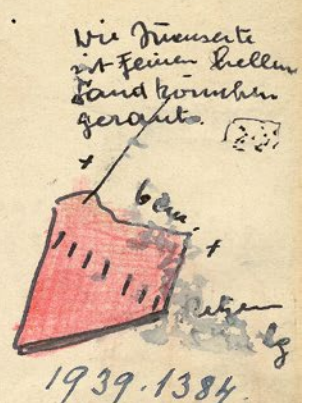 die Innenseite
ist feinen hellen
Sandkörnchen
geraut.
6 cm.
lg
1939.1384.